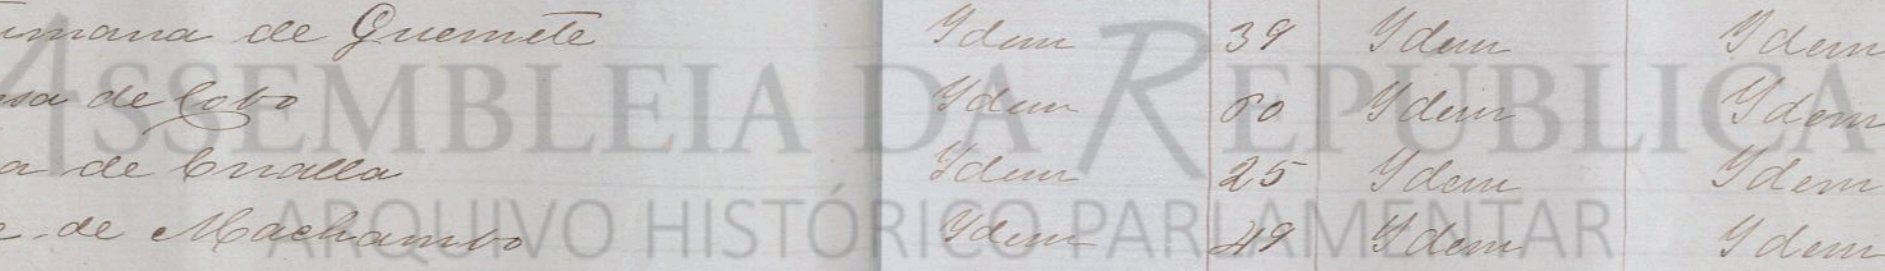 de Quemete Idem 39 Idem Idem
de Cobo Idem 60 Idem Idem
a de Idem 25 Idem Idem
de Machambo Idem 49 Idem Idem
ASSEMBLEIA DA REPÚBLICA
ARQUIVO HISTÓRICO PARLAMENTAR